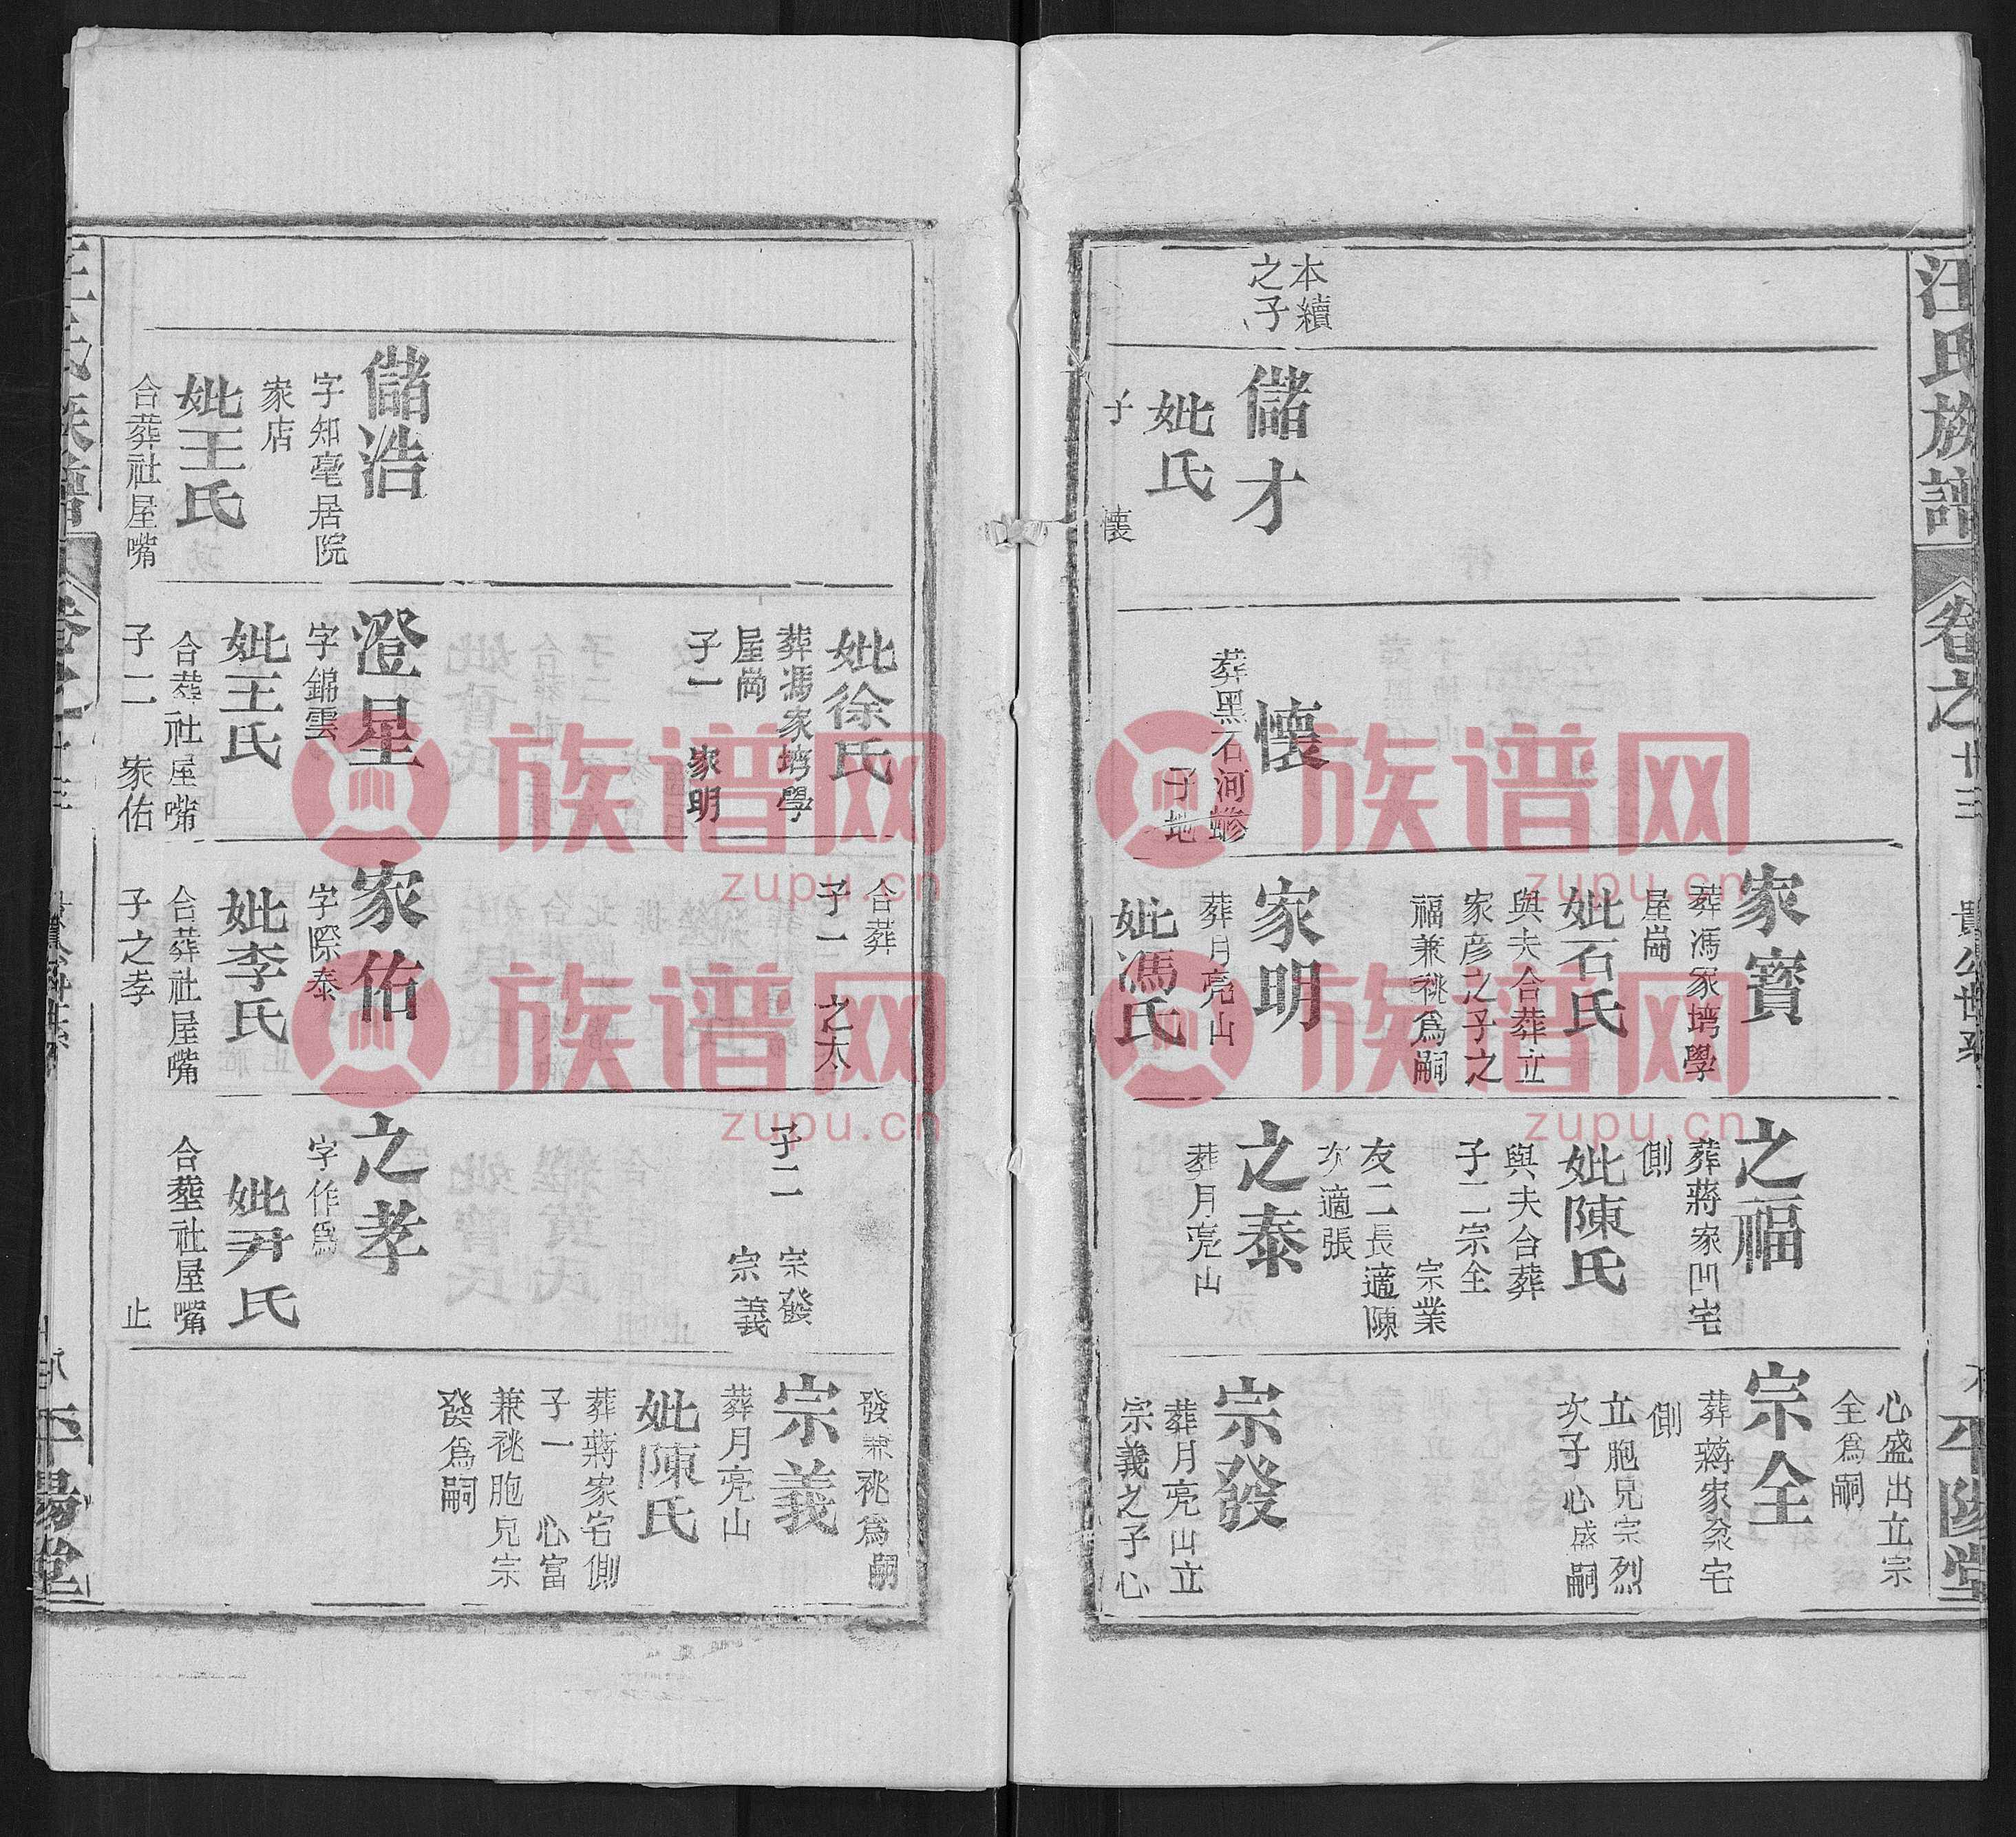 汪氏族譜
卷之
廿三
貴公世系
平陽堂
本續
之子
儲才
妣氏
子
懷
懷
葬黑石河
子地
家寶
葬馮家塆學
屋崗
妣石氏
與夫合葬立
家彦之子之
福兼祧爲嗣
家明
葬月亮山
妣馮氏
之福
葬蔣家凹宅
側
妣陳氏
與夫合葬
子二宗全
宗業
女二長適陳
次適張
之泰
葬月亮山
心盛出立宗
全爲嗣
宗全
葬蔣家宅
側
立胞兄宗烈
次子心盛嗣
宗發
葬月亮山立
宗義之子心
儲浩
字知毫居院
家店
妣王氏
合葬社屋嘴
妣徐氏
葬馮家塆學
屋崗
子一 家明
澄星
字錦雲
妣王氏
合葬社屋嘴
子二 家佑
合葬
子一 之太
家佑
字際泰
妣李氏
合葬社屋嘴
子之孝
子二 宗發
宗義
之孝
字作爲
妣尹氏
合塟社屋嘴
止
發兼祧爲嗣
宗義
葬月亮山
妣陳氏
葬蔣家宅側
子一 心富
兼祧胞兄宗
發爲嗣
平陽堂
族谱网
zupu.cn
族谱网
zupu.cn
族谱网
zupu.cn
族谱网
zupu.cn